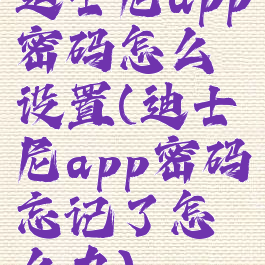 迪士尼app
密码怎么
设置(迪士
尼app密码
忘记了怎
么办)